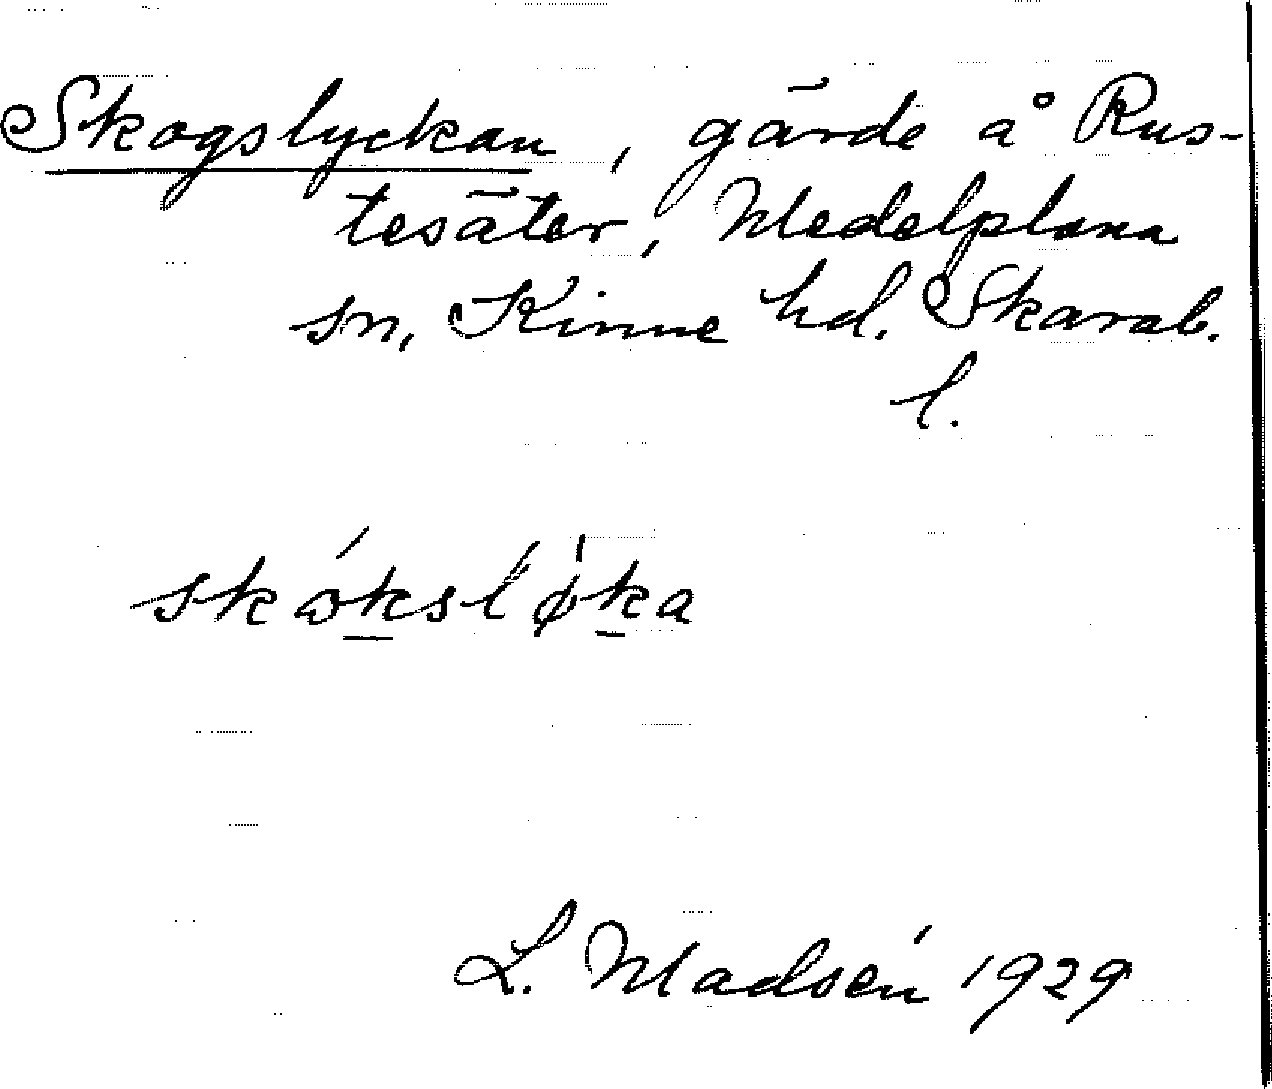 Skogslyckan, gärde å Rus-
tesäter, Medelplana
sn, Kinne hd. Skarab.
l.
skóksløka
L. Madsén 1929